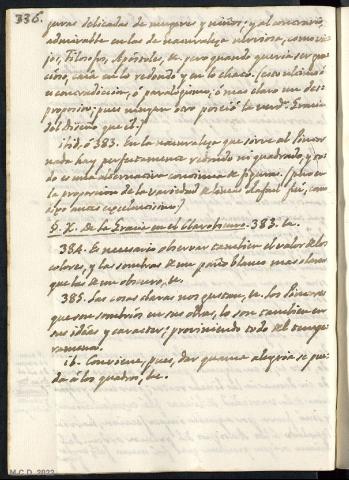 336.
guras delicadas de mugeres y niños; y al contrario,
admirable en las de naturaleza nerviosa, como vie-
jos, Filosofos, Apostoles, &c. pero quando queria ser gra-
cioso, caía en lo redondo y en lo chaco. (esto ultimo ó
es contradiccion, ó paralogismo, ó mas claro un des-
proposito; pues ningun otro poseió la verdª. Gracia
del Diseño que él.)
ibid. ó 383. En la naturaleza que sirve al Pintor
nada hay perfectamente redondo ni quadrado, y to-
do es una alternativa continua de figuras. (pero en
la proporcion de la variedad de lineas
digo antes
§. X. De la Gracia en el Claroobscuro. 383. &c.
384. Es necesario observar tambien el valor de los
colores, y las sombras de un paño blanco mas claras
que las de un obscuro, &c.
385. Las cosas claras nos gustan, &c. los Pintores
que son sombrios en sus obras, lo son tambien en
sus ideas y caracter; proviniendo todo del tempe-
ramento.
ib. Conviene, pues, dar quanta alegria se pue-
da á los quadros, &c.
M.C.D. 2022